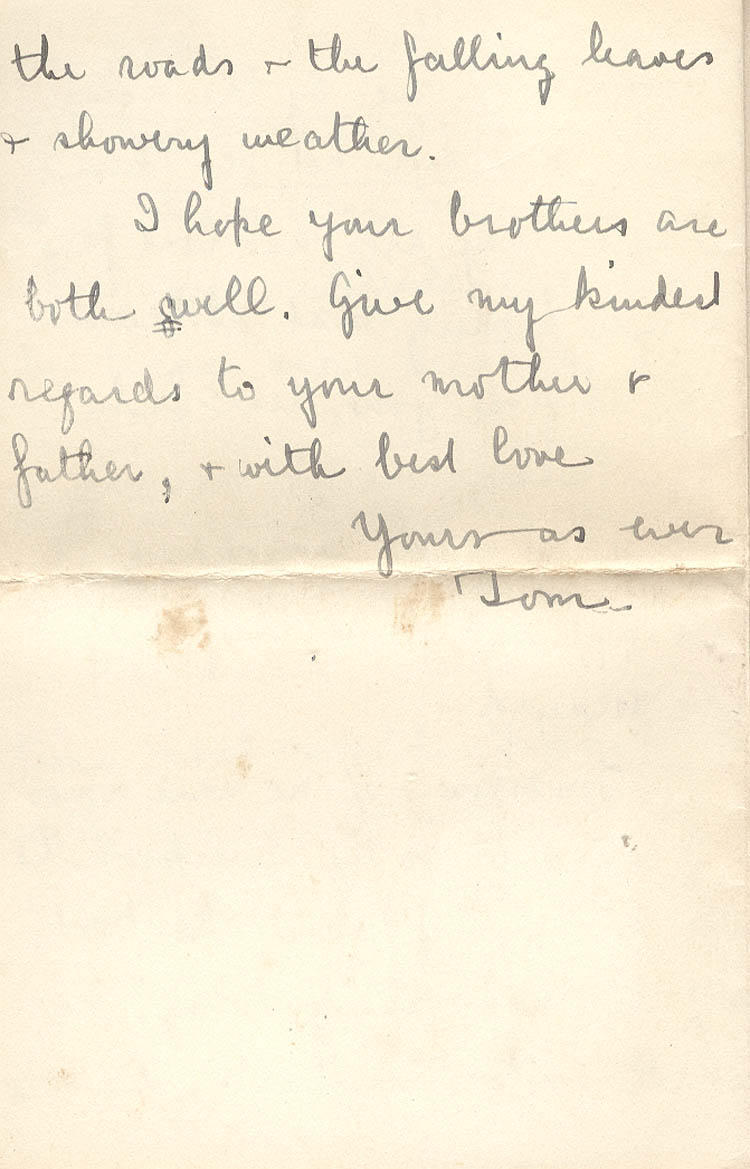 the roads + the falling leaves
+ showery weather.
I hope your brothers are
both well. Give my kindest
regards to your mother +
father, + with best love
Yours as ever
Tom.